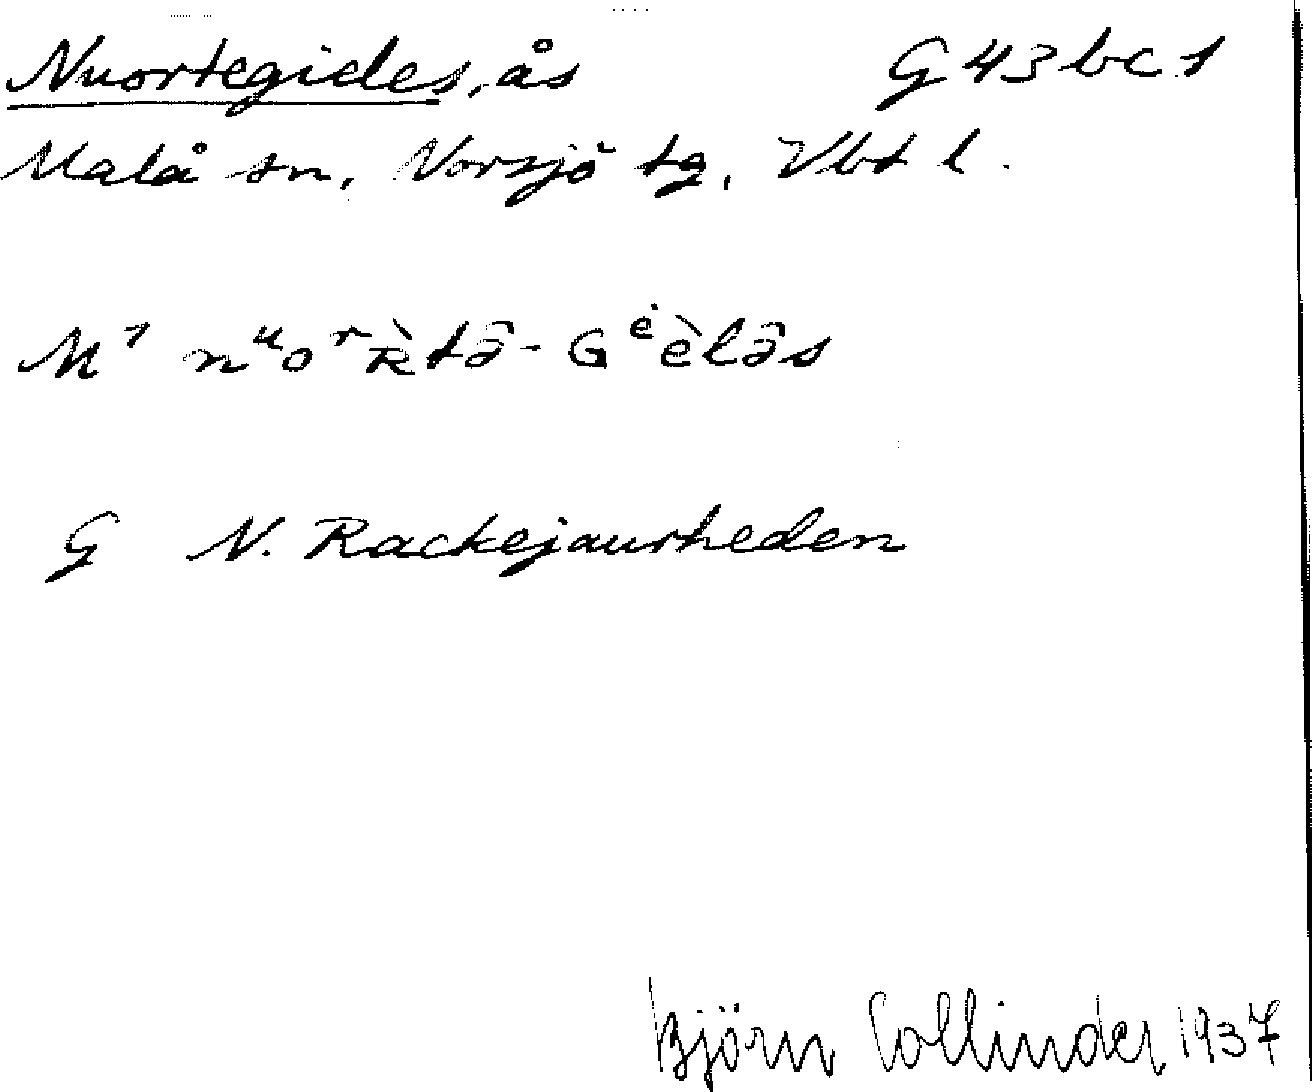 Nuortegieles, ås G 43 bc 1
Malå sn, Norsjö tg, Vbt l.
M¹ nᵘoʳʀ̀tə̂-Gėèlə̂s
G N. Rackejaurheden
Björn Collinder 1937